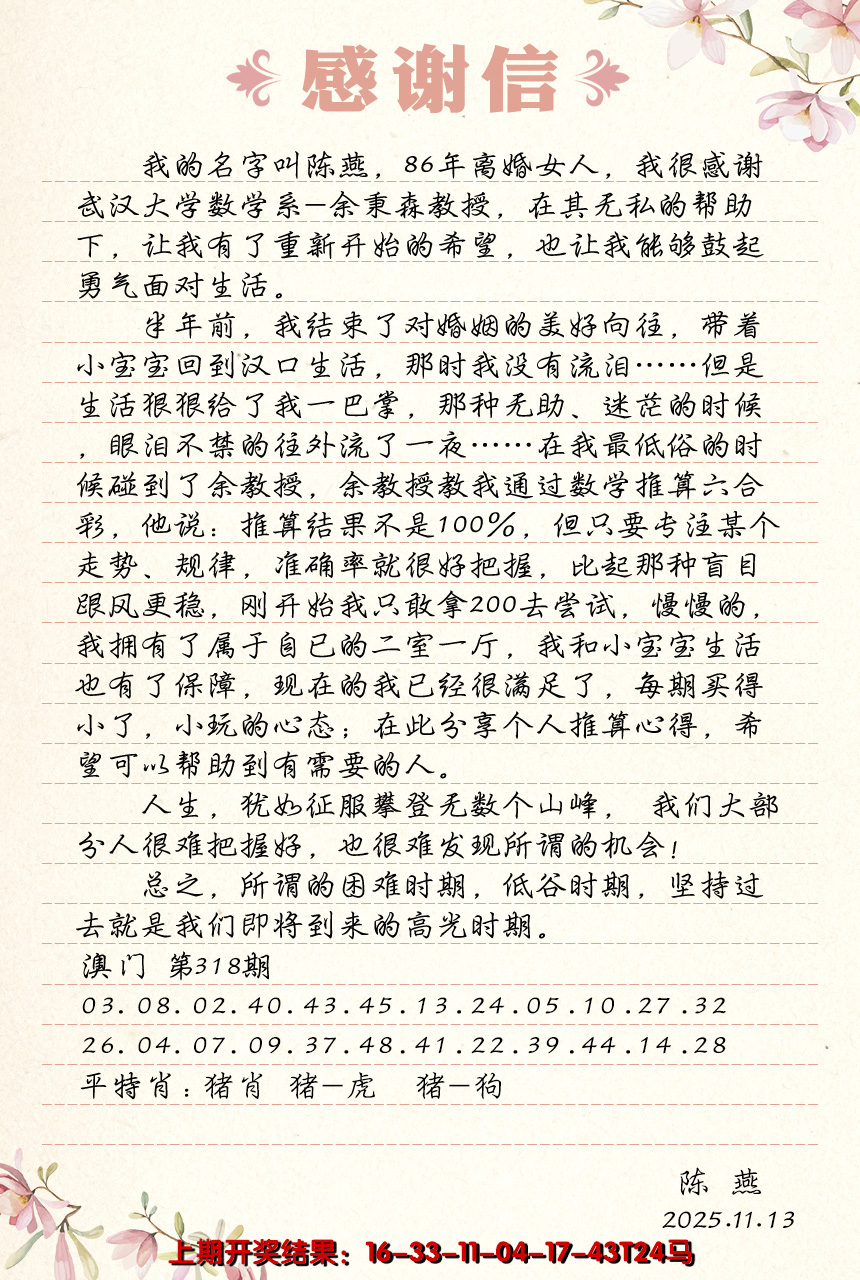 感谢信
我的名字叫陈燕，86年离婚女人，我很感谢
武汉大学数学系—余秉森教授，在其无私的帮助
下，让我有了重新开始的希望，也让我能够鼓起
勇气面对生活。
半年前，我结束了对婚姻的美好向往，带着
小宝宝回到汉口生活，那时我没有流泪……但是
生活狠狠给了我一巴掌，那种无助、迷茫的时候
，眼泪不禁的往外流了一夜……在我最低俗的时
候碰到了余教授，余教授教我通过数学推算六合
彩，他说：推算结果不是100%，但只要专注某个
走势、规律，准确率就很好把握，比起那种盲目
跟风更稳，刚开始我只敢拿200去尝试，慢慢的，
我拥有了属于自已的二室一厅，我和小宝宝生活
也有了保障，现在的我已经很满足了，每期买得
小了，小玩的心态；在此分享个人推算心得，希
望可以帮助到有需要的人。
人生，犹如征服攀登无数个山峰， 我们大部
分人很难把握好，也很难发现所谓的机会！
总之，所谓的困难时期，低谷时期，坚持过
去就是我们即将到来的高光时期。
澳门 第318期
03.08.02.40.43.45.13.24.05.10.27.32
26.04.07.09.37.48.41.22.39.44.14.28
平特肖：猪肖 猪—虎 猪—狗
陈 燕
2025.11.13
上期开奖结果：16-33-11-04-17-43T24马